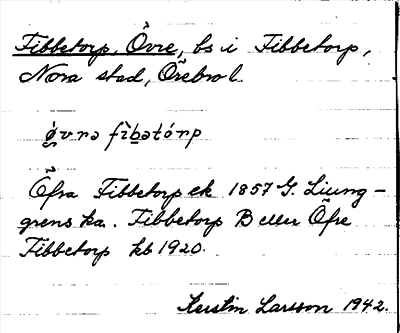 Fibbetorp, Övre, bs i Fibbetorp,
Nora stad, Örebro l.
ǿvrə fìbətórp
Öfra Fibbetorp ek 1857 G. Ljung-
grens ka. Fibbetorp B eller Öfre
Fibbetorp kb 1920.
Kerstin Larsson 1942.